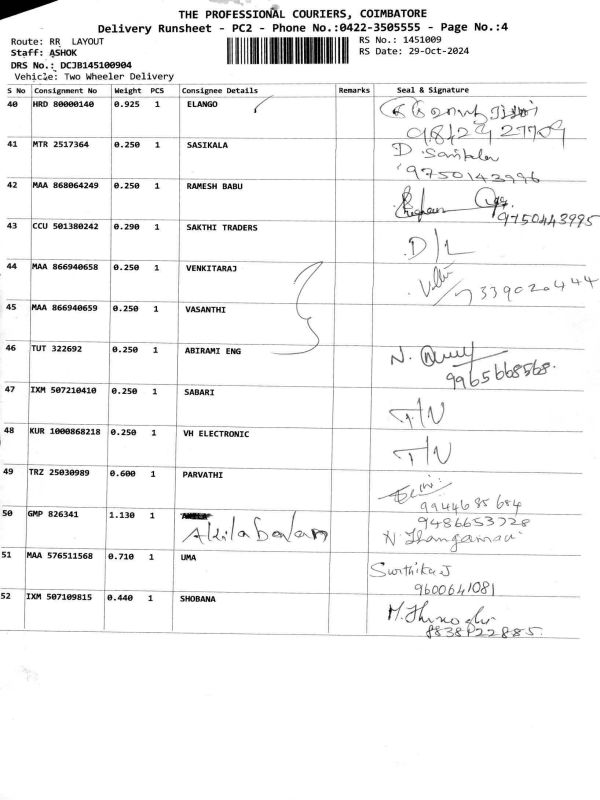 THE PROFESSIONAL COURIERS, COIMBATORE
Delivery Runsheet - PC2 - Phone No.:0422-3505555 - Page No.:4
Route: RR LAYOUT
Staff: ASHOK
DRS No.: DCJB145100904
Vehicle: Two Wheeler Delivery
RS No.: 1451009
RS Date: 29-Oct-2024
S No Consignment No Weight PCS Consignee Details Remarks Seal & Signature
40 HRD 80000140 0.925 1 ELANGO
41 MTR 2517364 0.250 1 SASIKALA D. Sasikala
9750143996
42 MAA 868064249 0.250 1 RAMESH BABU
9750443995
43 CCU 501380242 0.290 1 SAKTHI TRADERS D/L
44 MAA 866940658 0.250 1 VENKITARAJ
7339020444
45 MAA 866940659 0.250 1 VASANTHI
46 TUT 322692 0.250 1 ABIRAMI ENG N.
9965668568.
47 IXM 507210410 0.250 1 SABARI T/N
48 KUR 1000868218 0.250 1 VH ELECTRONIC T/N
49 TRZ 25030989 0.600 1 PARVATHI
9944685684
50 GMP 826341 1.130 1 9486653728
Akilabalan N. Thangamani
51 MAA 576511568 0.710 1 UMA Swithika J
9600641081
52 IXM 507109815 0.440 1 SHOBANA M.
8838122885.